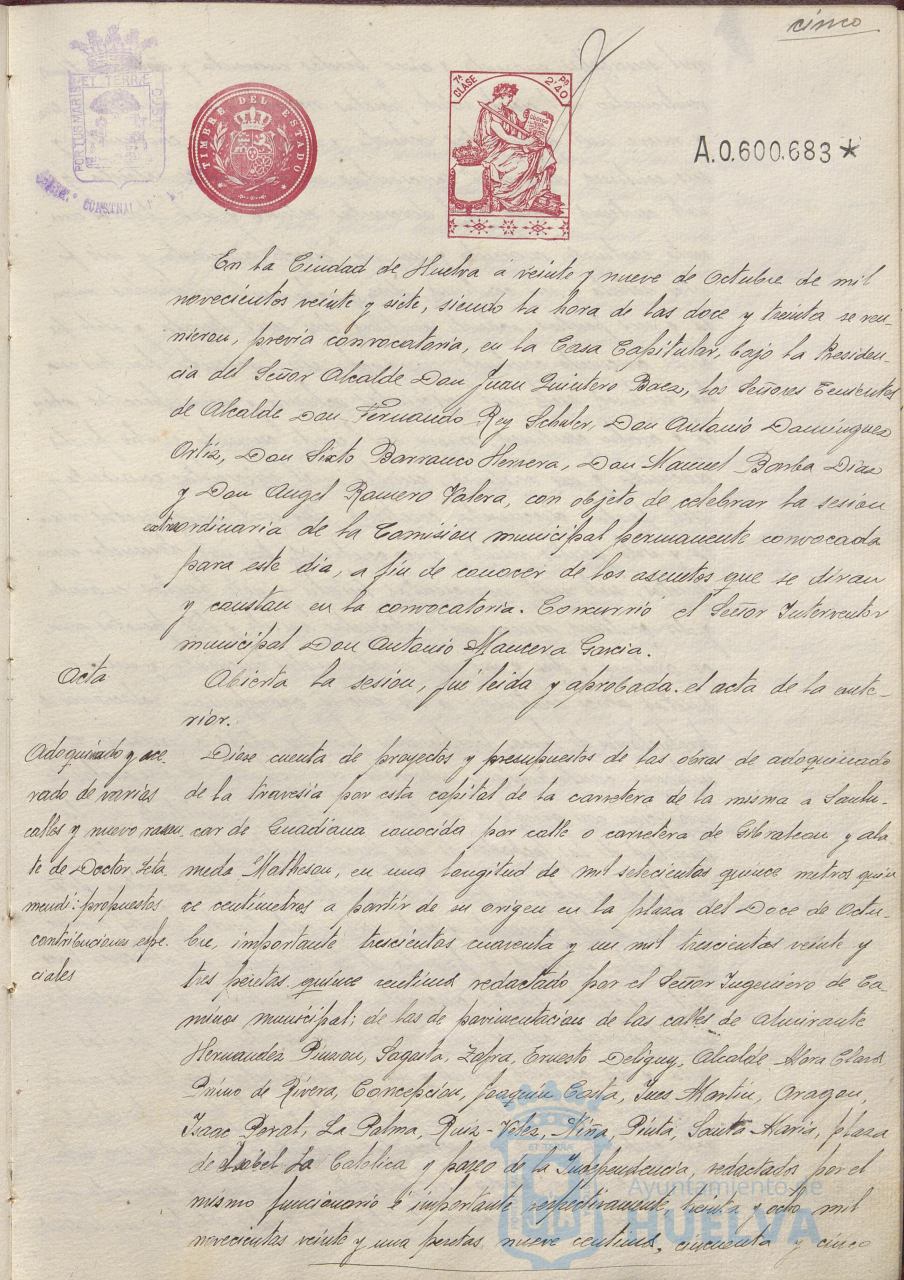 cinco
PORTUS MARIS ET TERRÆ CUST
TIMBRE DEL ESTADO
7ª CLASE
Pts 2'40
A.0.600.683 *
En la Ciudad de Huelva á veinte y nueve de Octubre de mil
novecientos veinte y siete, siendo la hora de las doce y treinta se reu-
nieron, previa convocatoria, en la Casa Capitular, bajo la Presiden-
cia del Señor Alcalde Don Juan Quintero Baez, los Señores Tenientes
de Alcalde Don Fernando Rey Schuler, Don Antonio Dominguez
Ortiz, Don Sixto Barranco Herrera, Don Manuel Barba Diaz
y Don Angel Romero Valera, con objeto de celebrar la sesion
extraordinaria de la Comision municipal permanente convocada
para este dia, a fin de conocer de los asuntos que se diran
y constan en la convocatoria. Concurrió el Señor Interventor
municipal Don Antonio Mancera Garcia.
Acta
Abierta la sesion, fué leida y aprobada el acta de la ante-
rior.
Adoquinado y ace
rado de varias
calles y nuevo rasan
te de Doctor Leta
mendi: propuestos
contribuciones espe-
ciales
Diose cuenta de proyectos y presupuestos de las obras de adoquinado
de la travesia por esta capital de la carretera de la misma a Sanlu-
car de Guadiana conocida por calle o carretera de Gibraleon y ala
meda Matheson, en una longitud de mil setecientos quince metros quin
ce centimetros a partir de su origen en la plaza del Doce de Octu-
bre, importante trescientos cuarenta y un mil trescientos veinte y
tres pesetas quince centimos redactado por el Señor Ingeniero de Ca
minos municipal; de los de pavimentacion de las calles de Almirante
Hernandez Pinzon, Sagasta, Zafra, Ernesto Deligny, Alcalde Mora Claros
Primo de Rivera, Concepcion, Joaquin Costa, Ines Martin, Aragon,
Isaac Peral, La Palma, Ruiz-Velez, Niña, Pinta, Santa Maria, plaza
de Isabel La Catolica y paseo de la Independencia, redactados por el
mismo funcionario é importante respectivamente, treinta y ocho mil
novecientas veinte y una pesetas nueve centimos, cincuenta y cinco
Ayuntamiento de
HUELVA